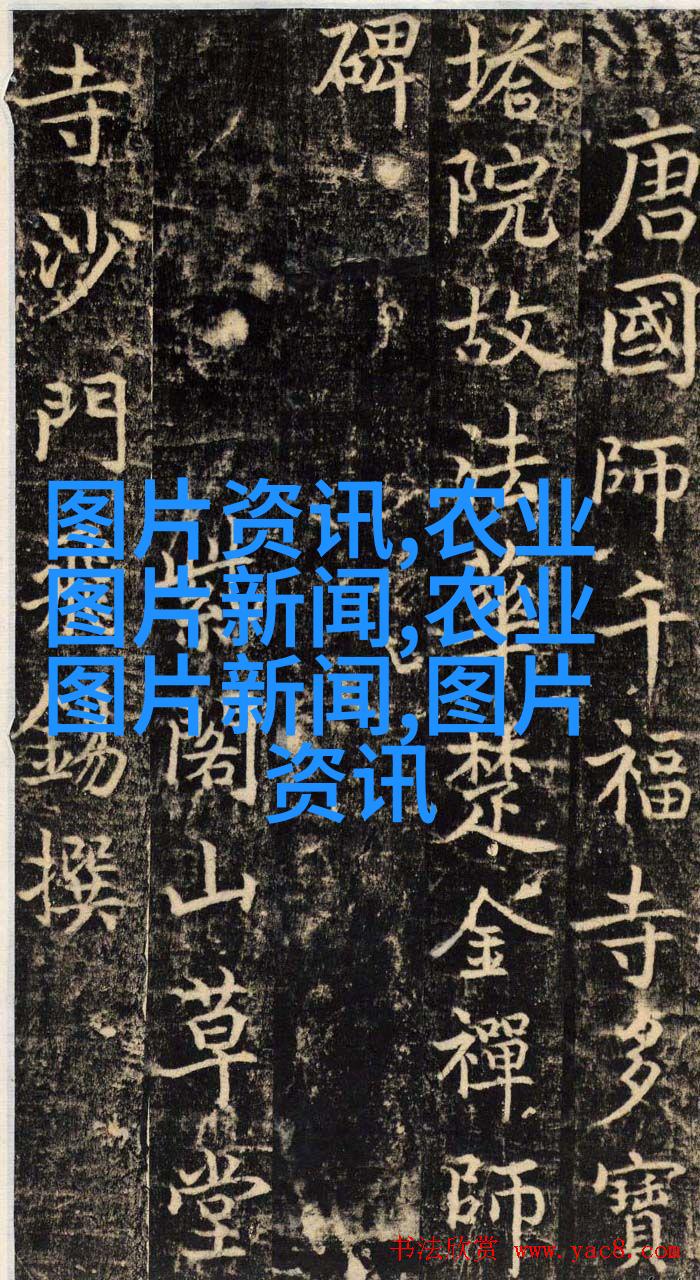 唐國師千福寺多寶
塔院故法華楚金禪師
碑
紫閣山草堂
寺沙門錫撰
图片资讯,农业
图片新闻,农业
图片新闻,图片
资讯
书法欣赏 www.yac8.com